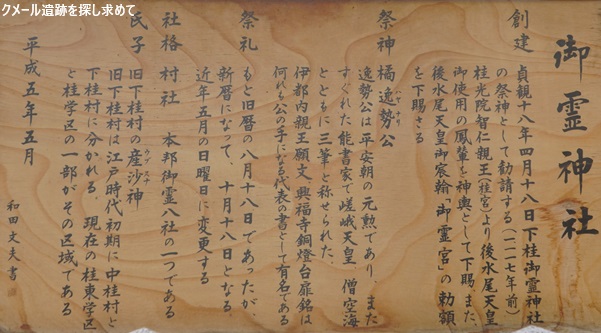 クメール遺跡を探し求めて
御霊神社
創建 貞観十八年四月十八日下桂御霊神社
の祭神として勧請する（一一一七年前）
桂光院智仁親王（桂宮）より後水尾天皇
御使用の鳳輦を神輿として下賜、また
後水尾天皇御宸翰「御霊宮」の勅額
を下賜さる
祭神 橘逸勢公
はやなり
逸勢公は平安朝の元勲であり、また
すぐれた能書家で嵯峨天皇、僧空海
とともに三筆と称せられた。
伊都内親王願文、興福寺銅燈台扉銘は
何れも公の手になる代表の書として有名である
祭礼 もと旧暦の八月十八日であったが、
新暦になって、十月十八日となる。
近年五月の日曜日に変更する
社格 村社 本邦御霊八社の一つである
氏子 旧下桂村の産沙神
ウブスナ
旧下桂村は江戸時代初期に中桂村と
下桂村に分かれる。現在の桂東学区
と桂学区の一部がその区域である
平成五年五月
和田文夫書